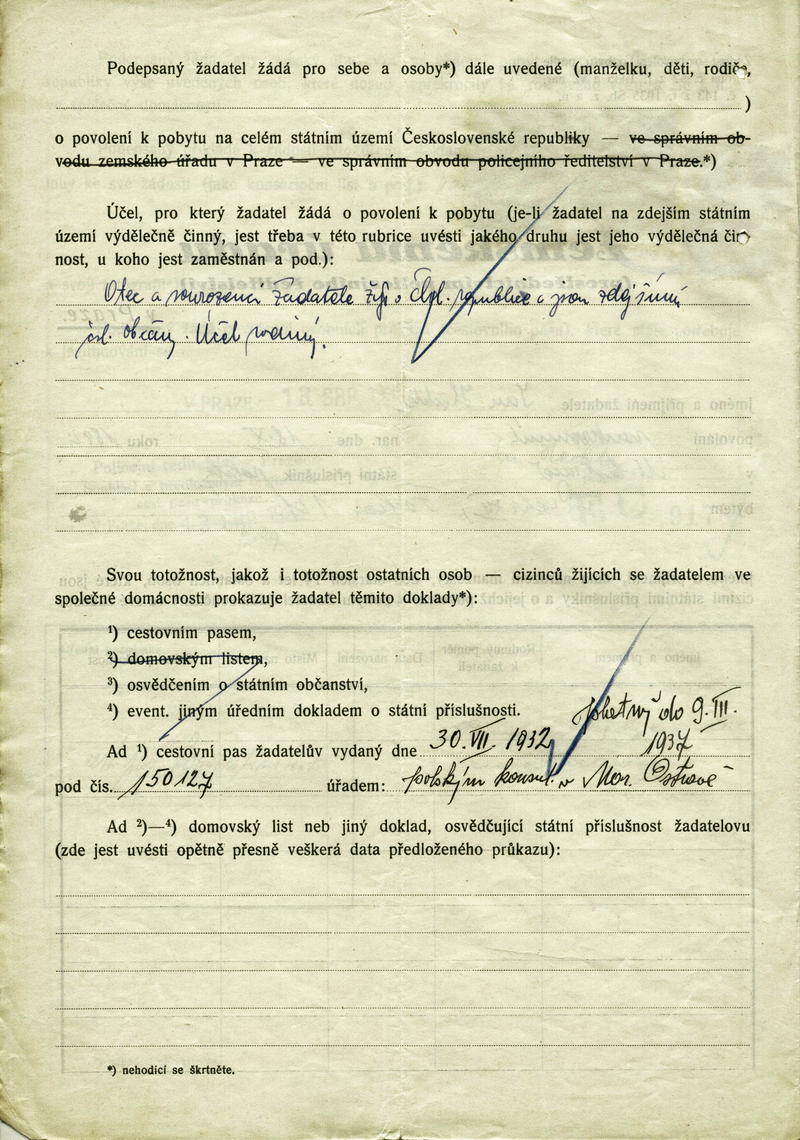 Podepsaný žadatel žádá pro sebe a osoby*) dále uvedené (manželku, děti, rodiče,
)
o povolení k pobytu na celém státním území Československé republiky — ve správním ob-
vodu zemského úřadu v Praze — ve správním obvodu policejního ředitelství v Praze.*)
Účel, pro který žadatel žádá o povolení k pobytu (je-li žadatel na zdejším státním
území výdělečně činný, jest třeba v této rubrice uvésti jakého druhu jest jeho výdělečná čin-
nost, u koho jest zaměstnán a pod.):
Otec a sourozenci žadatele žijí v Čsl. republice a jsou zdejšími
čsl. občany. Účel rodinný.
Svou totožnost, jakož i totožnost ostatních osob — cizinců žijících se žadatelem ve
společné domácnosti prokazuje žadatel těmito doklady*):
¹) cestovním pasem,
²) domovským listem,
³) osvědčením o státním občanství,
⁴) event. jiným úředním dokladem o státní příslušnosti.
do 9. III.
Ad ¹) cestovní pas žadatelův vydaný dne 30. VII. 1932 1937
pod čís. 150127 úřadem: polským konsul. v Mor. Ostravě
Ad ²)—⁴) domovský list neb jiný doklad, osvědčující státní příslušnost žadatelovu
(zde jest uvésti opětně přesně veškerá data předloženého průkazu):
*) nehodící se škrtněte.